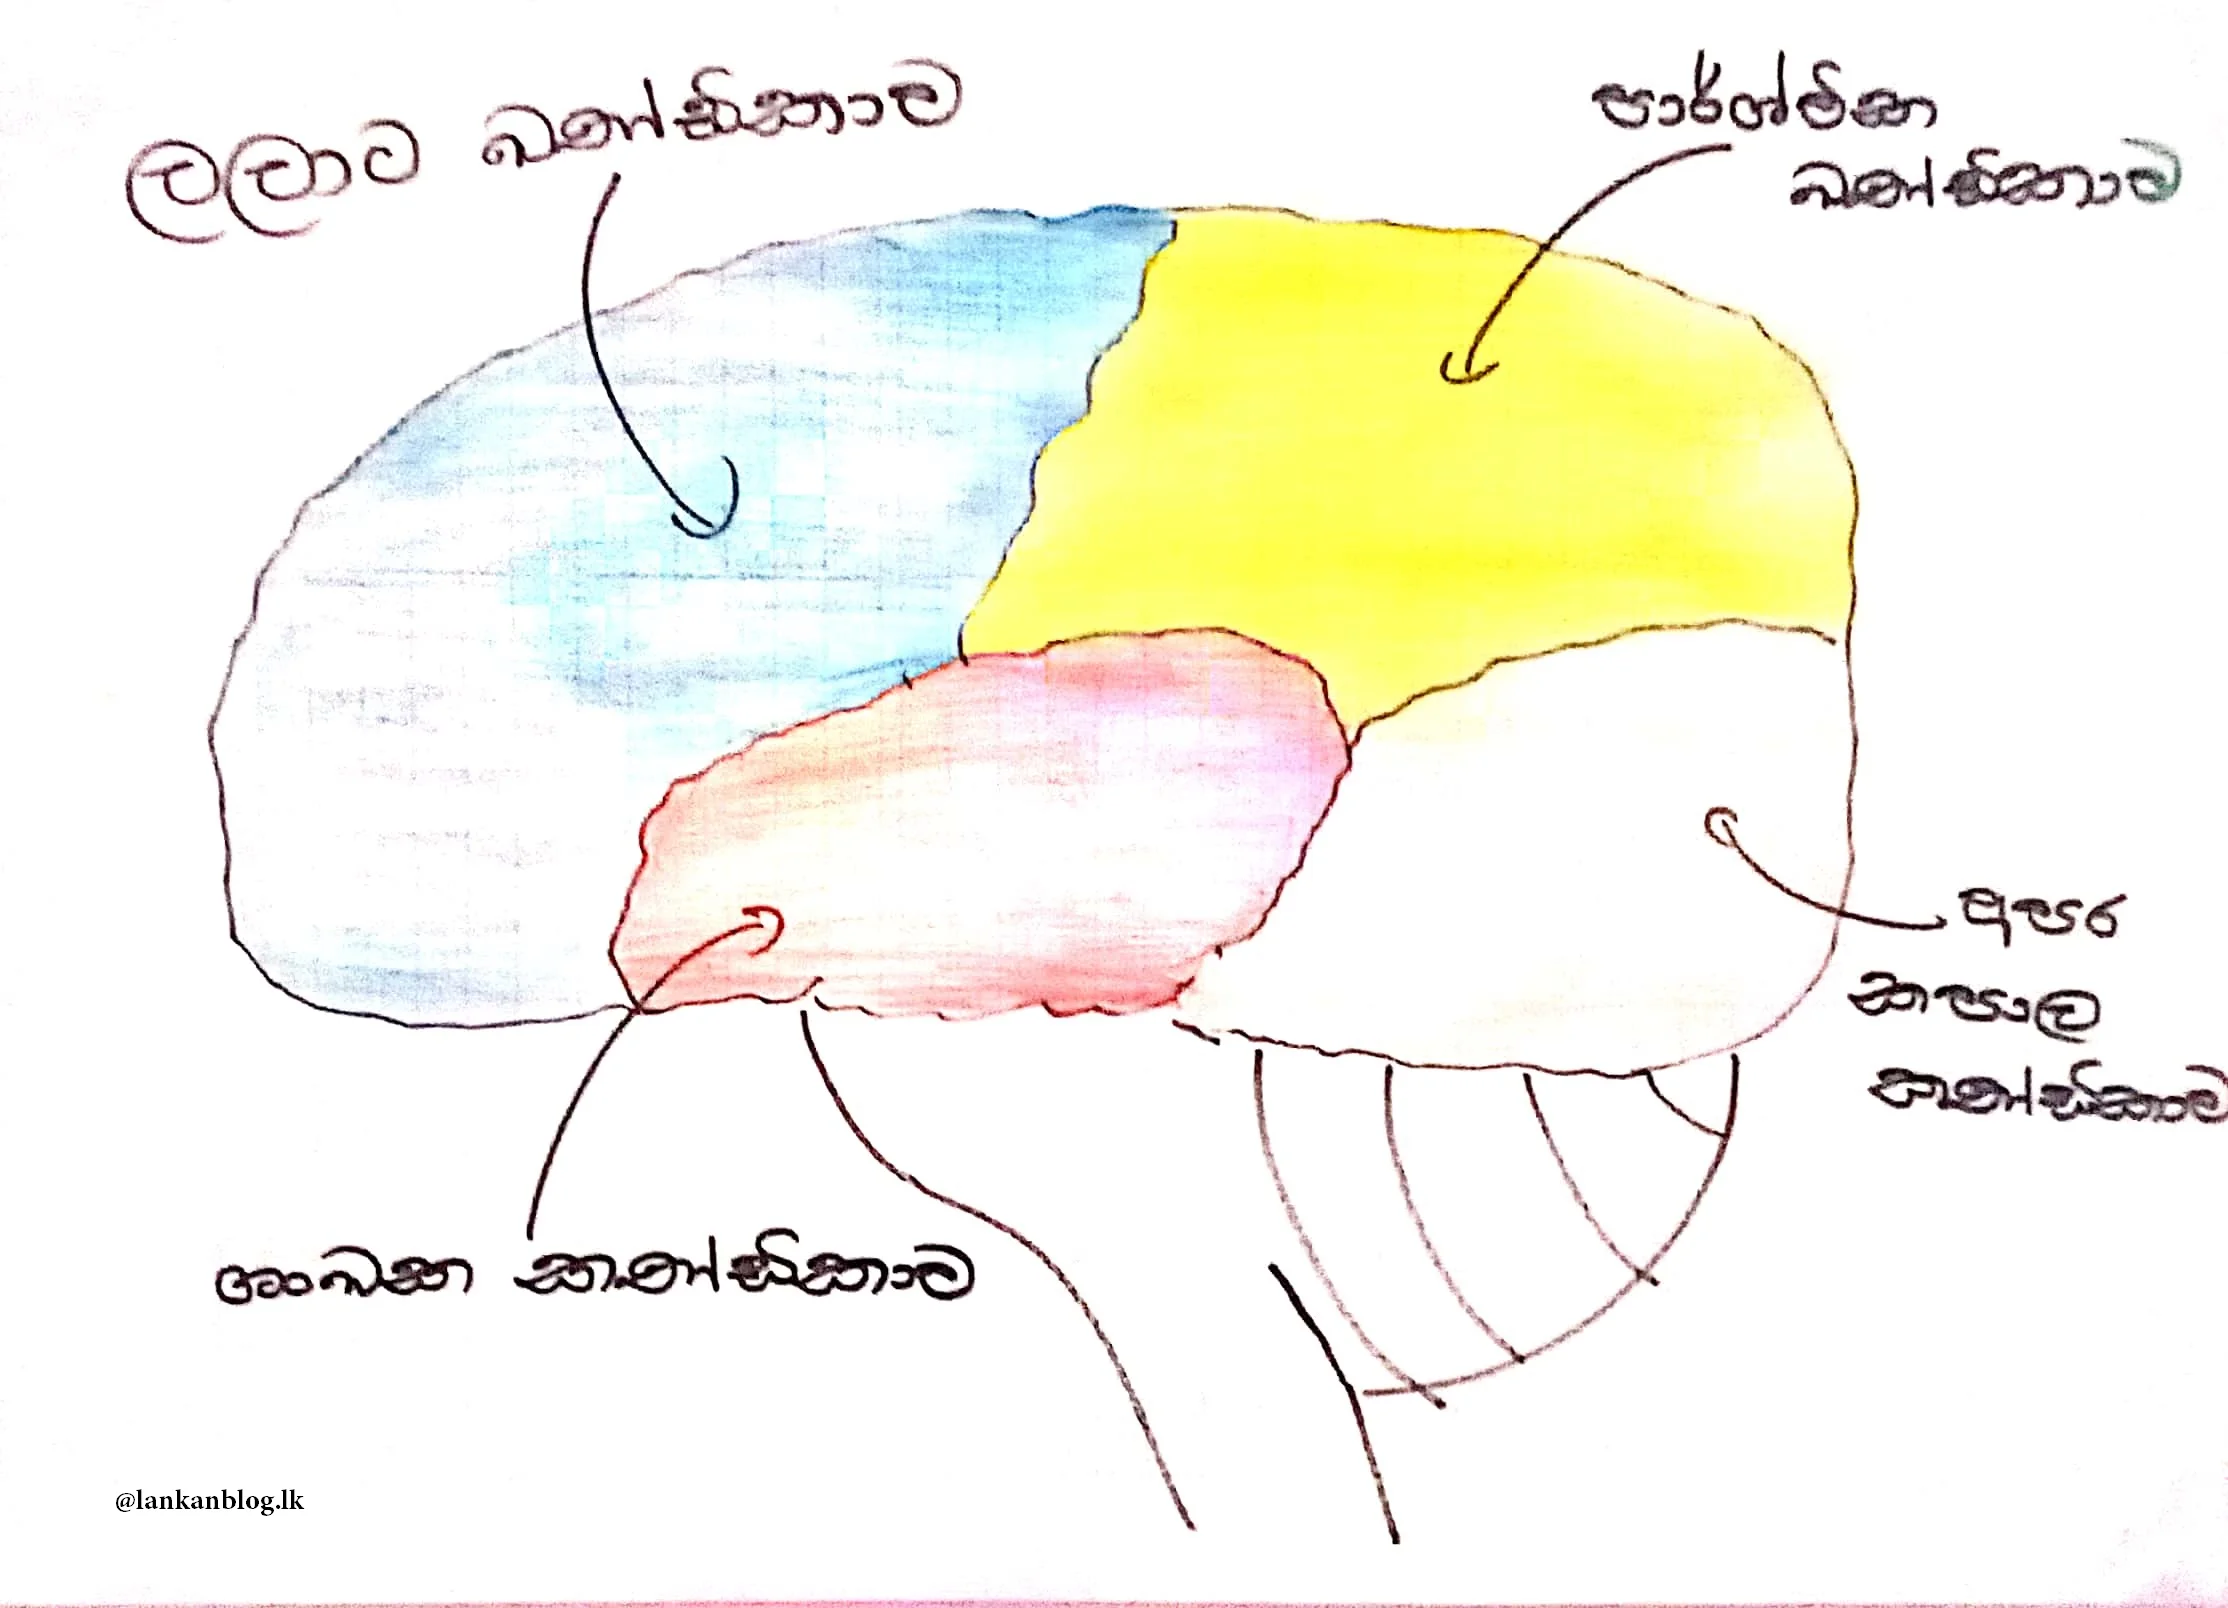 ලලාට ඛණ්ඩිකාව
පාර්ශ්වික
ඛණ්ඩිකාව
අපර
කපාල
ඛණ්ඩිකාව
ශංඛක ඛණ්ඩිකාව
@lankanblog.lk